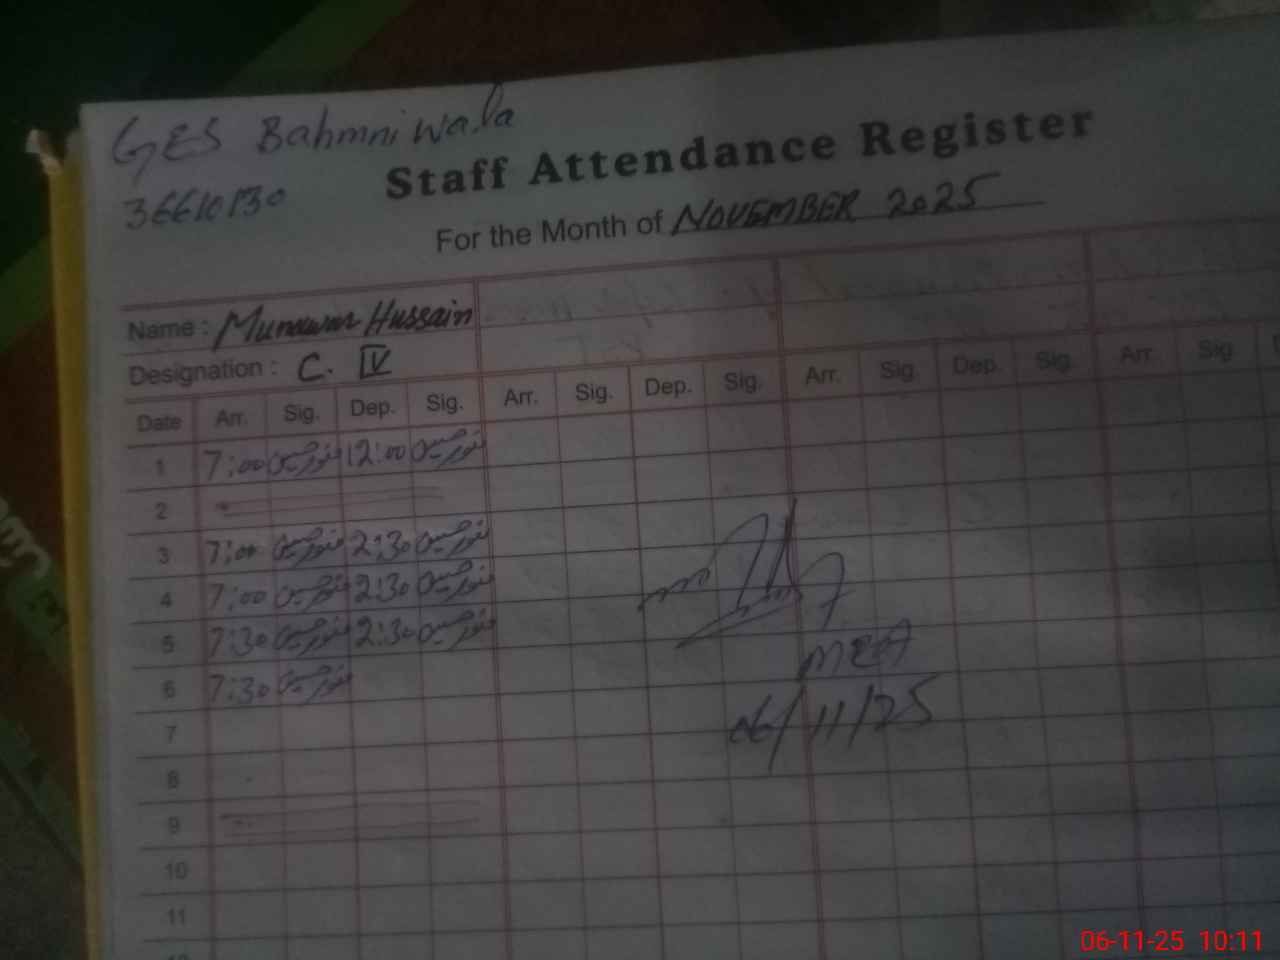 GES Bahmniwala
36610130
Staff Attendance Register
For the Month of NOVEMBER 2025
Name : Munawar Hussain
Designation : C. IV
Date Arr. Sig. Dep. Sig. Arr. Sig. Dep. Sig. Arr. Sig. Dep. Sig. Arr. Sig.
1 7:00 منور حسین 12:00 منور حسین
2
3 7:00 منور حسین 2:30 منور حسین
4 7:00 منور حسین 2:30 منور حسین
5 7:30 منور حسین 2:30 منور حسین
MEA
6 7:30 منور حسین
06/11/25
7
8
9
10
11
06-11-25 10:11